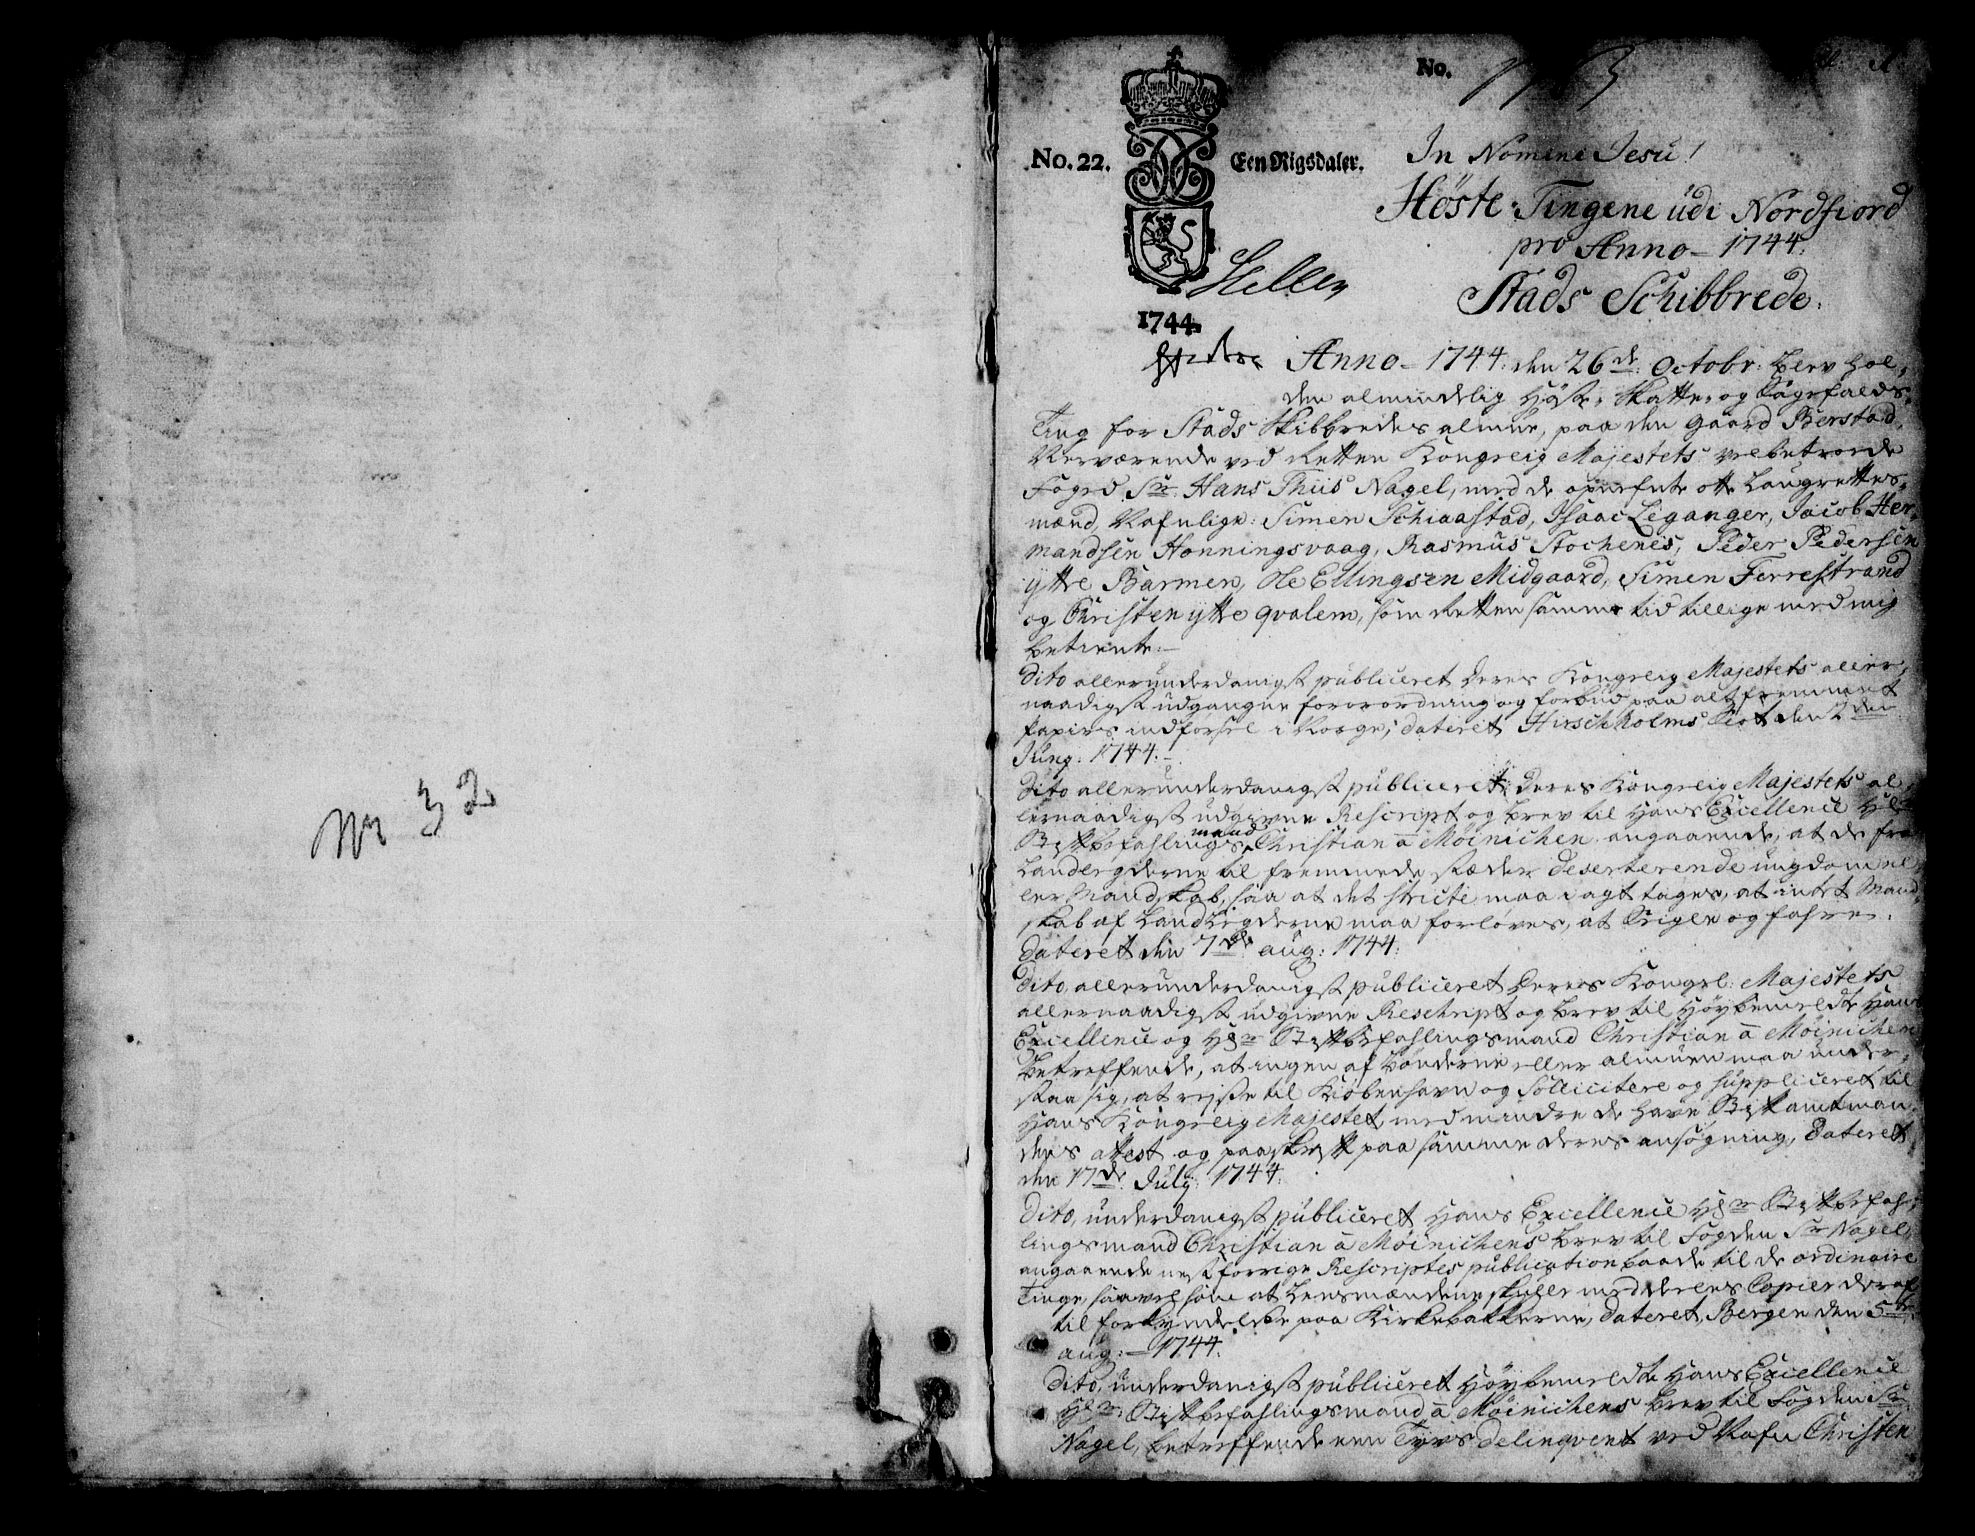 Nr 32
No.
No. 22.
Een Rigsdaler.
1744.
In Nomine Jesu!
Höste-Tingene udi Nordfiord
pro Anno - 1744.
Stads Schibbrede.
Anno - 1744. den 26de Octobr: blev hol-
den almindelig Höste, Skatte, og Sagefalds-
Ting for Stads Skibbredes almue, paa den Gaard Berstad,
Nerværende ved Retten Kongelig Majestets velbetroede
Foged Sr. Hans Thiis Nagel, med de opnefnte otte Laugrettes-
mænd, Nafnlige: Simen Schiaastad, Isaac Liganger, Jacob Her-
mandsen Honningsvaag, Rasmus Stochenes, Peder Pedersen
ytre Barmen, Ole Ellingsen Midgaard, Simen Ferrestrand
og Christen ytre qvalem, som Retten samme tid tillige med mig
betiente.
Dito allerunderdanigst publiceret Deres Kongelig Majestets aller-
naadigst udgangne forordning og forbud paa alt fremmet
Papirs indførsel i Norge; dateret Hirschholms Slot den 2den
Junij: 1744.
Dito allerunderdanigst publiceret, Deres Kongelig Majestets al-
lernaadigst udgivne Rescript og brev til Hans Excellence Hr.
Stiftbefahlingsmand Christian a Möinichen angaaende, at de fra
Landegderne til fremmede stæder deserterende ungdom el-
ler Mandskab, saa at det stricte maa i agt tages, at intet Mand-
skab af Landlegderne maa forløves, at seigle og fahre.
Dateret den 7de aug: 1744.
Dito, allerunderdanigst publiceret Deres Kongel: Majestets
allernaadigst udgivne Reschript og brev til Höybemeldte Hans
Excellence og Hr. Stiftbefahlingsmand Christian a Möinichen
betreffende, at ingen af bönderne eller almuen maa under-
staa sig, at rejse til Kiöbenhavn og Sollicitere og suppliceret til
Hans Kongelig Majestet, med mindre de have Stiftamtman-
dens attest og paaskrift paa samme deres ansögning, Dateret
den 17de July: 1744.
Dito, underdanigst publiceret Hans Excellence Hr. Stiftbefah-
lingsmand Christian a Möinichens brev til Fogden Sr. Nagel,
angaaende nest forrige Rescriptes publication baade til de ordinaire
Tinge, saavel som at Lensmændene skuller med deres Copier deraf
til forkyndelse paa Kirkebakkerne, dateret Bergen den 5te
aug: - 1744.
Dito, underdanigst publiceret Höybemeldte Hans Excellence
Hr. Stiftbefahlingsmand a Möinichens brev til Fogden Sr.
Nagel, betreffende een Tyvs delinqvent ved Nafn Christen